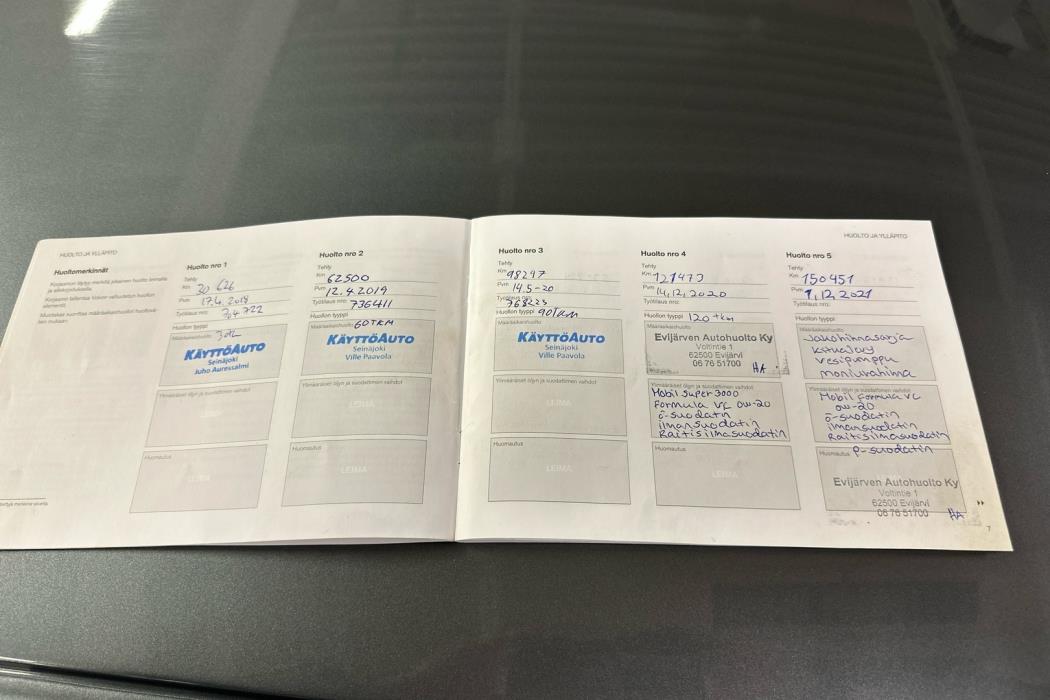 HUOLTO JA YLLÄPITO
Huoltomerkinnät
Huolto nro 1
Tehty
Km 30 626
Pvm 17.4. 2018
Työtilaus nro: 704722
Huollon tyyppi
Määräaikaishuolto
KÄYTTÖAUTO
Seinäjoki
Juho Auressalmi
Ylimääräiset öljyn ja suodattimen vaihdot
LEIMA
Huomautus
LEIMA
Huolto nro 2
Tehty
Km 62500
Pvm 12.4.2019
Työtilaus nro: 736411
Huollon tyyppi
Määräaikaishuolto 60TKM
KÄYTTÖAUTO
Seinäjoki
Ville Paavola
Ylimääräiset öljyn ja suodattimen vaihdot
LEIMA
Huomautus
LEIMA
Huolto nro 3
Tehty
Km 98247
Pvm 14.5-20
Työtilaus nro:
Huollon tyyppi
Määräaikaishuolto
KÄYTTÖAUTO
Seinäjoki
Ville Paavola
Ylimääräiset öljyn ja suodattimen vaihdot
LEIMA
Huomautus
LEIMA
Huolto nro 4
Tehty
Km 121473
Pvm 14.12.2020
Työtilaus nro:
Huollon tyyppi 120 tkm
Määräaikaishuolto
Evijärven Autohuolto Ky
Voltintie 1
62500 Evijärvi
06 76 51700 HA
Ylimääräiset öljyn ja suodattimen vaihdot
Mobil Super 3000
Formula VC 0W-20
ö-suodatin
ilmansuodatin
Raitisilmasuodatin
Huomautus
LEIMA
HUOLTO JA YLLÄPITO
Huolto nro 5
Tehty
Km 150451
Pvm 1.12.2021
Työtilaus nro:
Huollon tyyppi
Määräaikaishuolto
Jakohihnasarja
vesipumppu
moniurahihna
Mobil Formula VC
0W-20
ö-suodatin
ilmansuodatin
Raitisilmasuodatin
Huomautus P-suodatin
Evijärven Autohuolto Ky
Voltintie 1
62500 Evijärvi
06 76 51700 HA
7